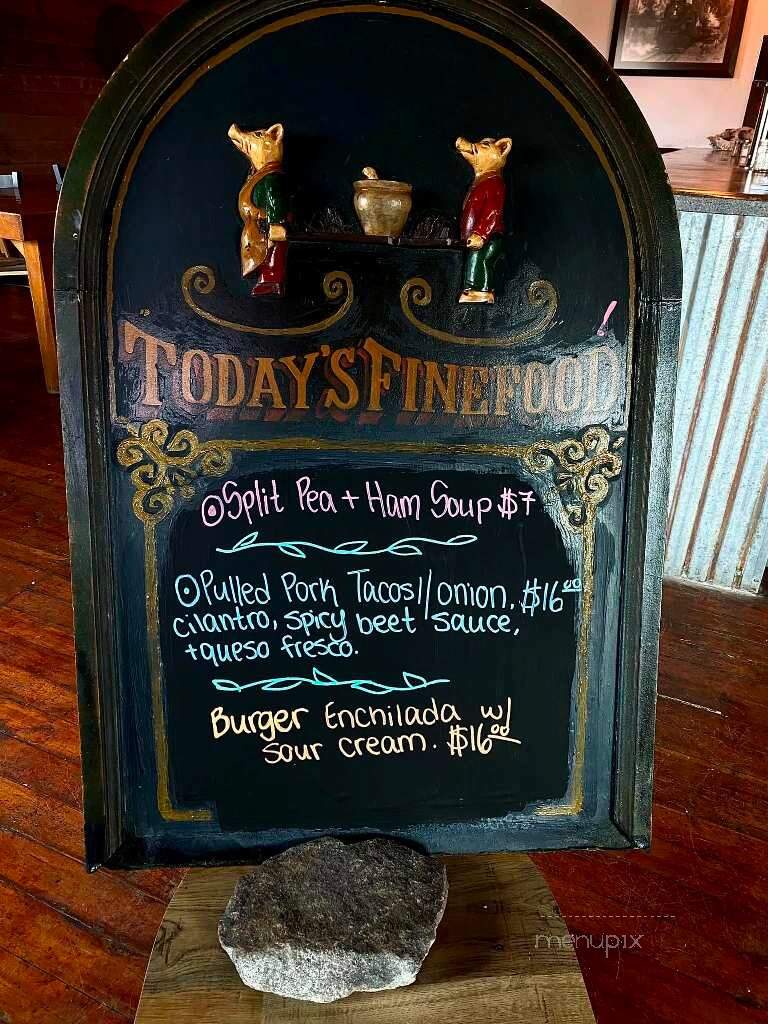 TODAY'S FINE FOOD!
⊙Split Pea + Ham Soup $7
⊙Pulled Pork Tacos // onion, $16⁰⁰
cilantro, spicy beet sauce,
+queso fresco.
Burger Enchilada w/
sour cream. $16⁰⁰
menupix